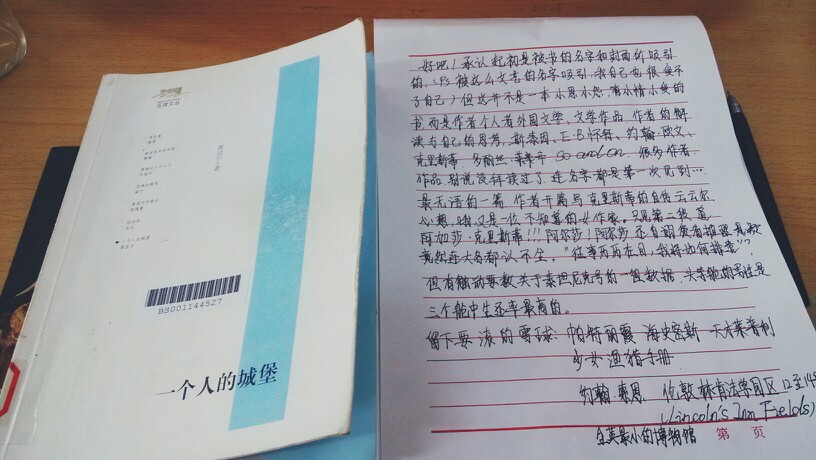 黄昱宁 著
BS001144527
一个人的城堡
好吧!承认起初是被书的名字和封面所吸引
的,(Ps 被这么文艺的名字吸引,我自己也很受不
了自己)但这并不是一本小恩小怨 有小情小爱的
书,而是作者个人者外国文学、文学作品,作者的解
读与自己的思考,斯泰因、E·B怀特、约翰·欧文、
克里斯蒂、多丽丝·莱辛 so and on. 很多作者、
作品,别说没拜读过了,连名字都是第一次见到…
最无语的一篇,作者开篇与克里斯蒂的自传云云尔
心想,瞎,又是一位不知道的女作家。只见第二段,直
阿加莎·克里斯蒂!!!阿尔莎!阿尔莎!还自诩爱看推理
竟然连大名都认不全。“往事历历在目,我将如何
但有触动要数关于泰坦尼克号的一组数据,头等舱的男性是
三个舱中生还率最高的。
留下要滚的雪球:帕特丽霞 海史密斯
少女渔猎手册
约翰 索恩 伦敦林肯法学园区12至14
(Lincoln's Inn Fields)
全英最小的博物馆
第 页